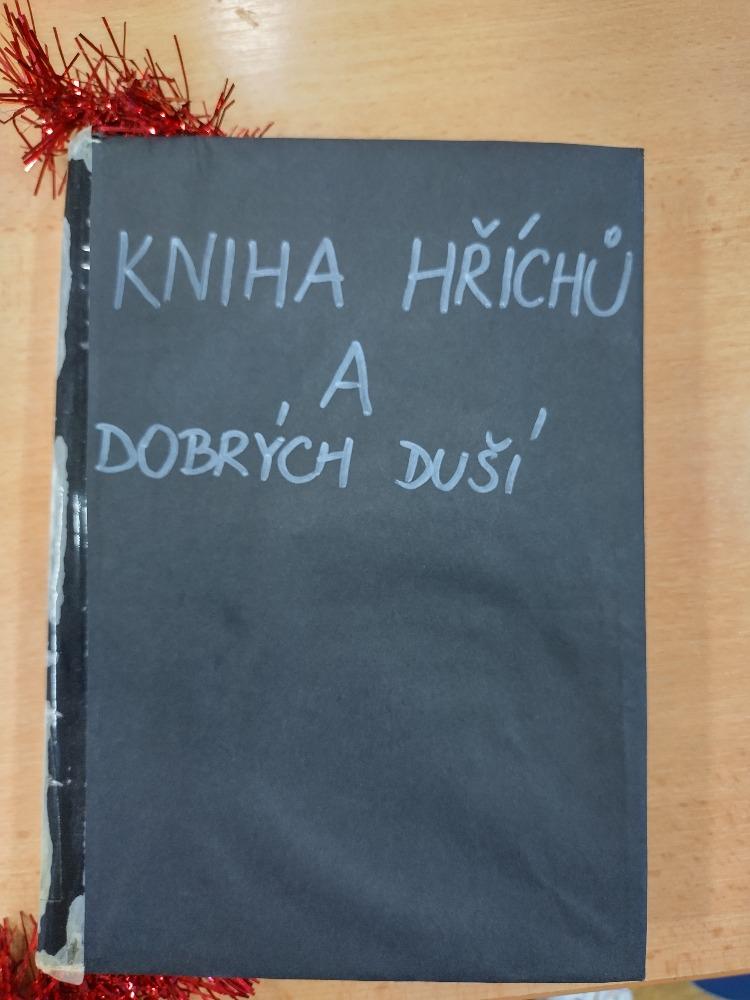 KNIHA HŘÍCHŮ
A
DOBRÝCH DUŠÍ